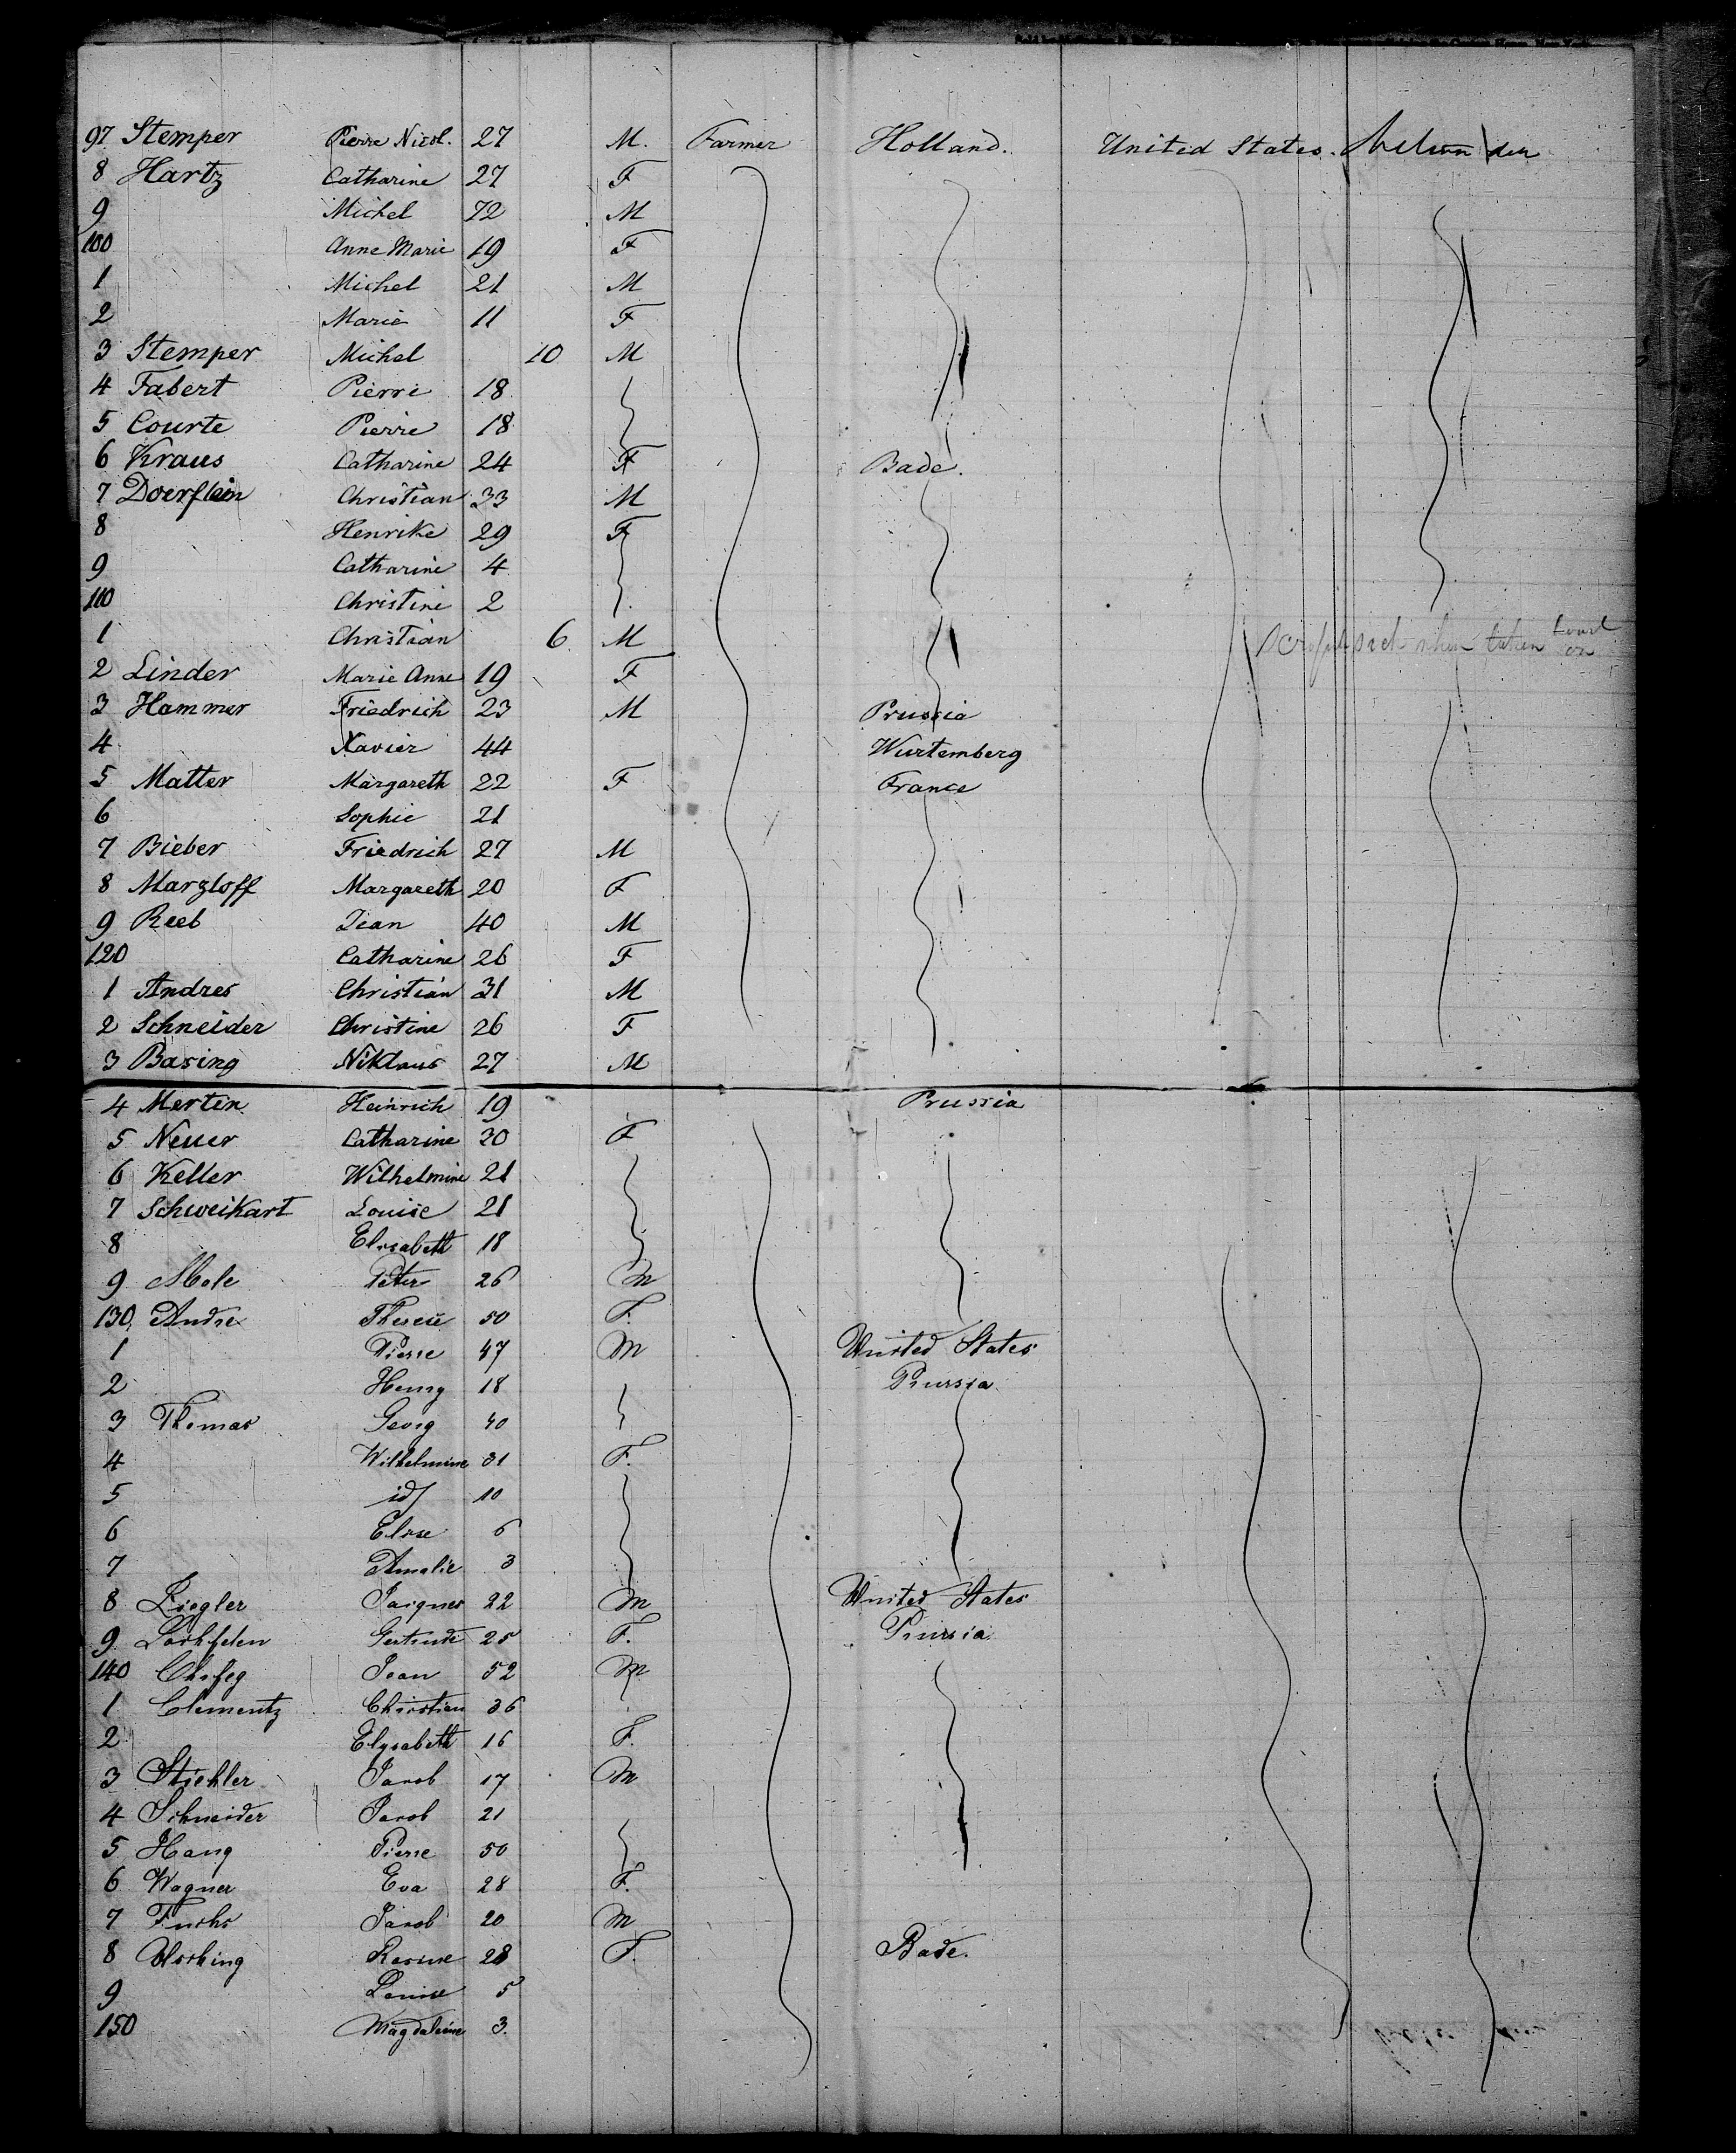 97 Stemper Pierre Nicol. 27 M. Farmer Holland. United States.
8 Hartz Catharine 27 F
9 Michel 72 M
100 Anne Marie 19 F
1 Michel 21 M
2 Marie 11 F
3 Stemper Michel 10 M
4 Fabert Pierre 18
5 Courte Pierre 18
6 Kraus Catharine 24 F Bade.
7 Doerflein Christian 33 M
8 Henrike 29 F
9 Catharine 4
110 Christine 2
1 Christian 6 M sick when taken on board
2 Linder Marie Anne 19 F
3 Hammer Friedrich 23 M Prussia
4 Xavier 44 Wurtemberg
5 Matter Margareth 22 F France
6 Sophie 21
7 Bieber Friedrich 27 M
8 Marzloff Margareth 20 F
9 Reeb Jean 40 M
120 Catharine 26 F
1 Andres Christian 31 M
2 Schneider Christine 26 F
3 Basing Niklaus 27 M
4 Mertin Heinrich 19 Prussia
5 Neuer Catharine 30 F
6 Keller Wilhelmine 21
7 Schweikart Louise 21
8 Elisabeth 18
9 Peter 26 M
130 Andre Therese 50 F.
1 Pierre 47 M United States
2 Henry 18 Prussia
3 Thomas Georg 40
4 Wilhelmine 31 F.
5 id 10
6 Elise 6
7 Amalie 3
8 Ziegler Jacques 22 M United States
9 Gertrude 25 F. Prussia
140 Jean 52 M
1 Clementz Christian 36
2 Elysabeth 16 F.
3 Stichler Jacob 17 M
4 Schneider Jacob 21
5 Hang Pierre 50
6 Wagner Eva 28 F.
7 Fuchs Jacob 20 M
8 Rosine 28 F. Bade.
9 Louise 5
150 Magdaleine 3.